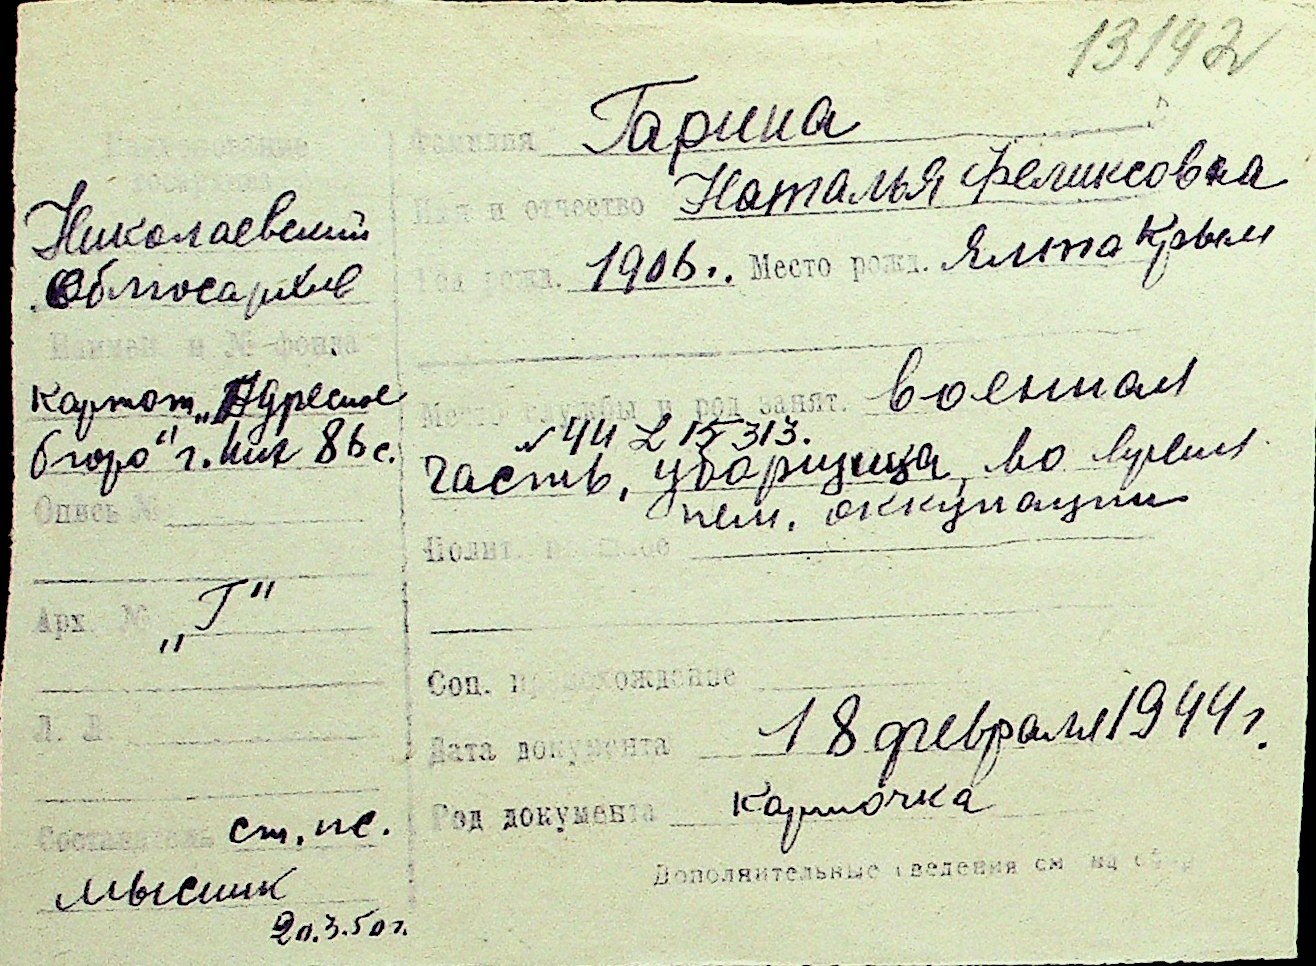 13142
Наименование
госархива
Николаевский
Облгосархив
Наимен. и № фонда
Картот. „Адресное
бюро" г. Ник 86 с.
Опись №
Арх. № „Г"
Л. Л.
Составитель ст. нс.
Мысник
20.3.50 г.
Фамилия Гарина
Имя и отчество Наталья Феликсовна
Год рожд. 1906г. Место рожд. Ялта Крым
Место службы и род занят. военная
№ 44 L 15313.
часть, уборщица, во время
нем. оккупации
Полит. прошлое
Соц. происхождение
Дата документа 18 февраля 1944 г.
Род документа карточка
Дополнительные сведения см. на обор